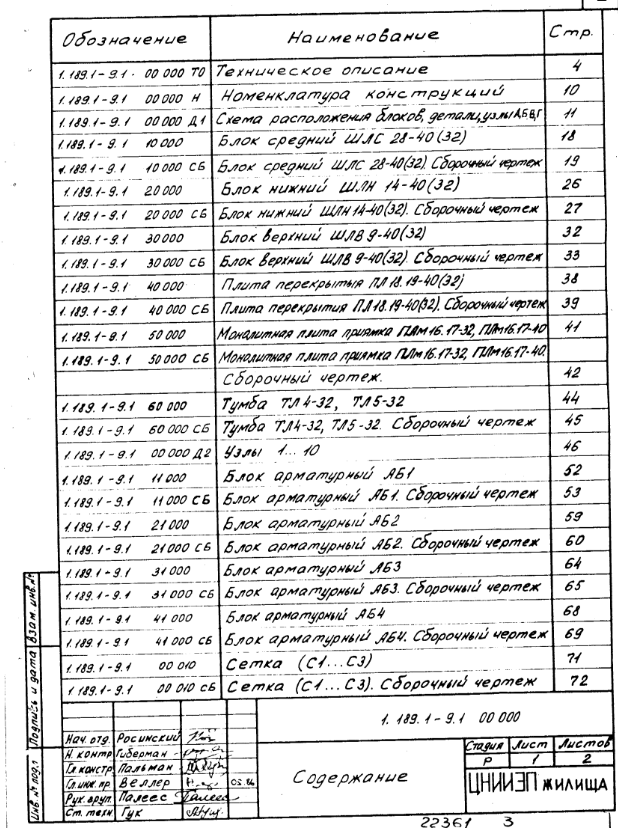 Обозначение Наименование Стр.
1.189.1-9.1 00 000 ТО Техническое описание 4
1.189.1-9.1 00 000 Н Номенклатура конструкций 10
1.189.1-9.1 00 000 Д1 Схема расположения блоков, детали, узлы А,Б,В,Г 11
1.189.1-9.1 10 000 Блок средний ШЛС 28-40(32) 18
1.189.1-9.1 10 000 СБ Блок средний ШЛС 28-40(32). Сборочный чертеж 19
1.189.1-9.1 20 000 Блок нижний ШЛН 14-40(32) 26
1.189.1-9.1 20 000 СБ Блок нижний ШЛН 14-40(32). Сборочный чертеж 27
1.189.1-9.1 30 000 Блок верхний ШЛВ 9-40(32) 32
1.189.1-9.1 30 000 СБ Блок верхний ШЛВ 9-40(32). Сборочный чертеж 33
1.189.1-9.1 40 000 Плита перекрытия ПЛ 18.19-40(32) 38
1.189.1-9.1 40 000 СБ Плита перекрытия ПЛ 18.19-40(32). Сборочный чертеж 39
1.189.1-9.1 50 000 Монолитная плита приямка ПЛм 16.17-32, ПЛм 16.17-40 41
1.189.1-9.1 50 000 СБ Монолитная плита приямка ПЛм 16.17-32, ПЛм 16.17-40.
Сборочный чертеж. 42
1.189.1-9.1 60 000 Тумба ТЛ4-32, ТЛ5-32 44
1.189.1-9.1 60 000 СБ Тумба ТЛ4-32, ТЛ5-32. Сборочный чертеж 45
1.189.1-9.1 00 000 Д2 Узлы 1...10 46
1.189.1-9.1 11 000 Блок арматурный АБ1 52
1.189.1-9.1 11 000 СБ Блок арматурный АБ1. Сборочный чертеж 53
1.189.1-9.1 21 000 Блок арматурный АБ2 59
1.189.1-9.1 21 000 СБ Блок арматурный АБ2. Сборочный чертеж 60
1.189.1-9.1 31 000 Блок арматурный АБ3 64
1.189.1-9.1 31 000 СБ Блок арматурный АБ3. Сборочный чертеж 65
1.189.1-9.1 41 000 Блок арматурный АБ4 68
1.189.1-9.1 41 000 СБ Блок арматурный АБ4. Сборочный чертеж 69
1.189.1-9.1 00 010 Сетка (С1...С3) 71
1.189.1-9.1 00 010 СБ Сетка (С1...С3). Сборочный чертеж 72
Взам. инв. №
Подпись и дата
Инв. № подл
1.189.1-9.1 00 000
Нач. отд. Росинский
Н. контр Гиберман
Гл. констр Пальман
Гл. инж. пр. Веллер 05.84
Рук. груп. Палеес
Ст. техн Гук
Содержание
Стадия Лист Листов
Р 1 2
ЦНИИЭП жилища
22361 3